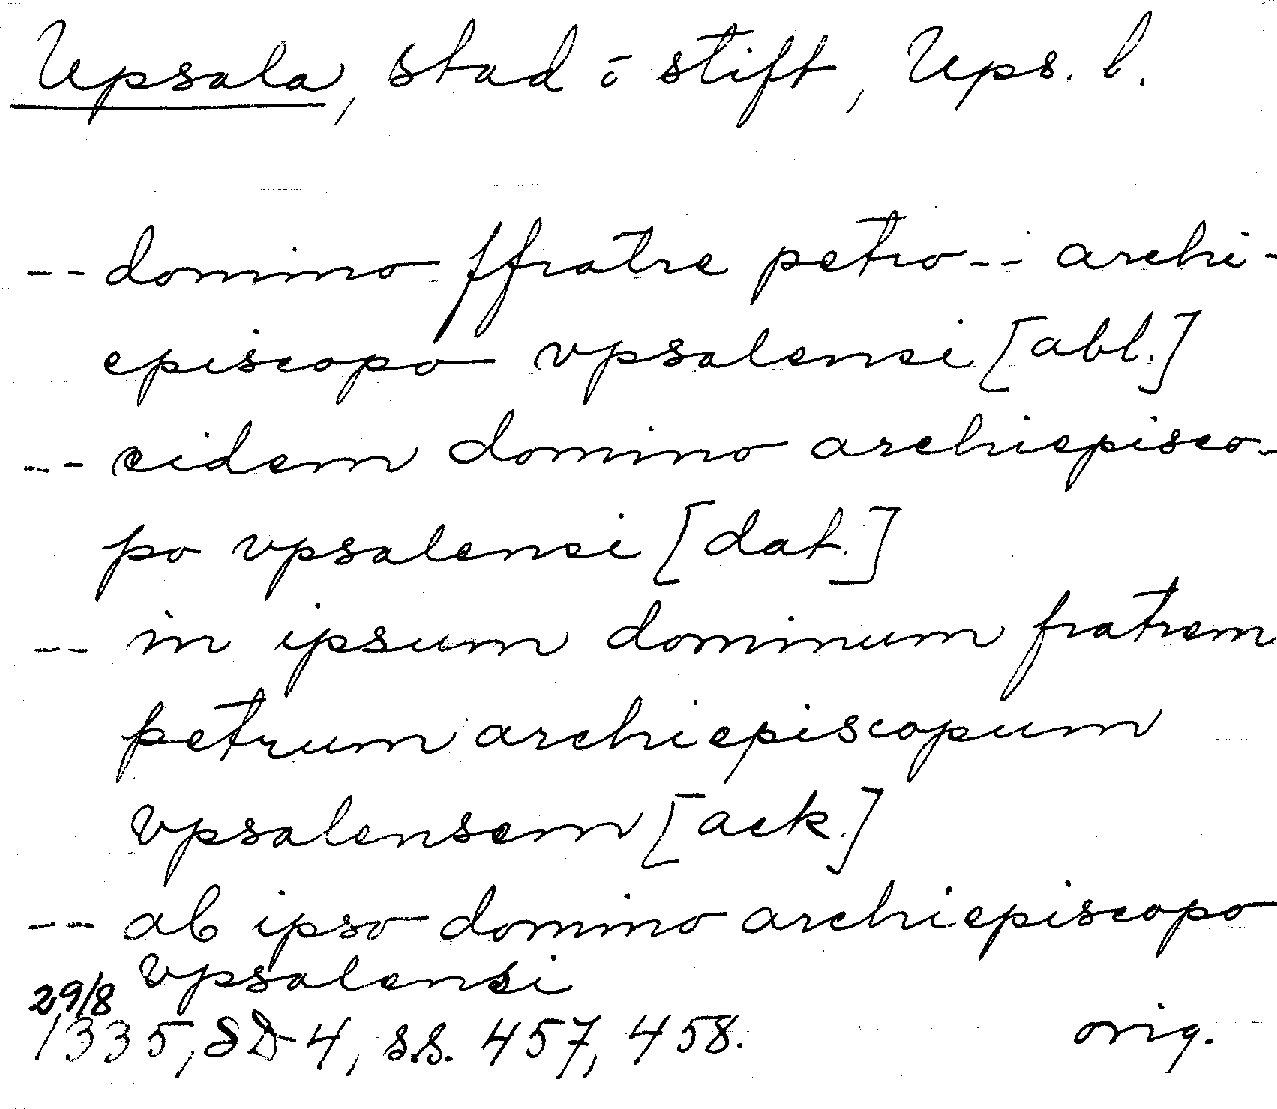 Upsala, stad o stift, Ups. l.
-- domino ffratre petro -- archi-
episcopo vpsalensi [abl.]
-- eidem domino archiepisco-
po vpsalensi [dat.]
-- in ipsum dominum fratrem
petrum archiepiscopum
vpsalensem [ack.]
-- ab ipso domino archiepiscopo
vpsalensi
29/8
1335, SD 4, s.s. 457, 458. orig.